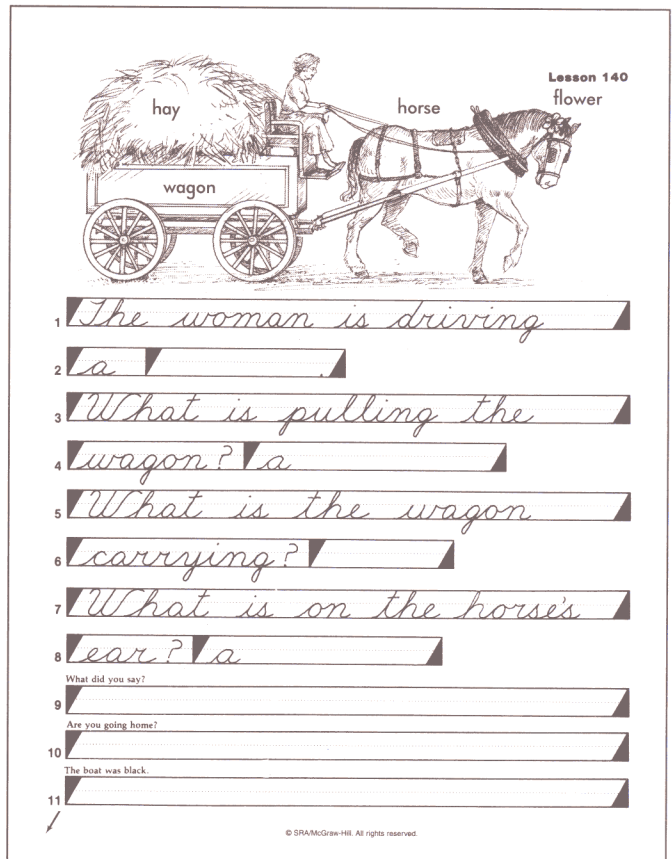 Lesson 140
hay
horse
flower
wagon
1 The woman is driving
2 a .
3 What is pulling the
4 wagon? a
5 What is the wagon
6 carrying?
7 What is on the horse's
8 ear? a
What did you say?
9
Are you going home?
10
The boat was black.
11
© SRA/McGraw-Hill. All rights reserved.